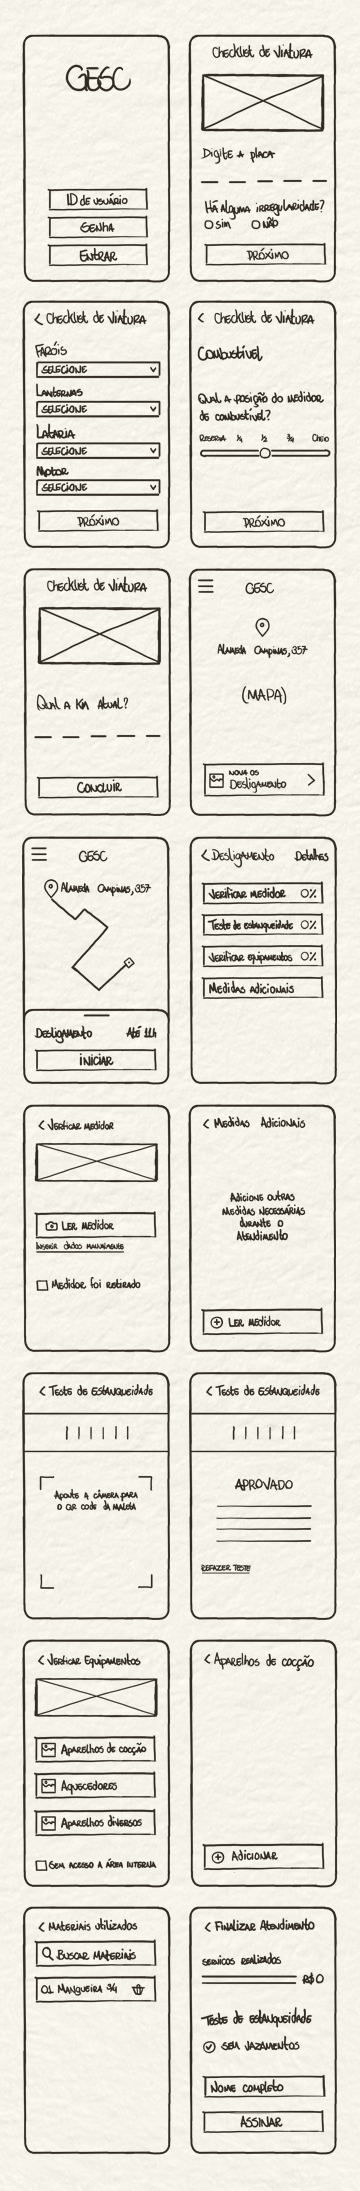 GESC
ID de usuário
Senha
Entrar
Checklist de Viatura
Digite a placa
Há alguma irregularidade?
Sim Não
Próximo
Checklist de Viatura
Faróis
Selecione
Lanternas
Selecione
Lataria
Selecione
Motor
Selecione
Próximo
Checklist de Viatura
Combustível
Qual a posição do medidor
de combustível?
Reserva 1/4 1/2 3/4 Cheio
Próximo
Checklist de Viatura
Qual a Km atual?
Concluir
GESC
Alameda Campinas, 357
(MAPA)
Nova OS
Desligamento
GESC
Alameda Campinas, 357
Desligamento Até 11h
Iniciar
Desligamento Detalhes
Verificar medidor 0%
Teste de estanqueidade 0%
Verificar equipamentos 0%
Medidas adicionais
Verificar medidor
Ler medidor
Inserir dados manualmente
Medidor foi retirado
Medidas Adicionais
Adicione outras
medidas necessárias
durante o
atendimento
Ler medidor
Teste de Estanqueidade
Aponte a câmera para
o QR code da maleta
Teste de Estanqueidade
APROVADO
Refazer teste
Verificar Equipamentos
Aparelhos de cocção
Aquecedores
Aparelhos diversos
Sem acesso a área interna
Aparelhos de cocção
Adicionar
Materiais utilizados
Buscar materiais
01 Mangueira 3/4
Finalizar Atendimento
Serviços realizados
R$0
Teste de estanqueidade
Sem vazamentos
Nome completo
Assinar